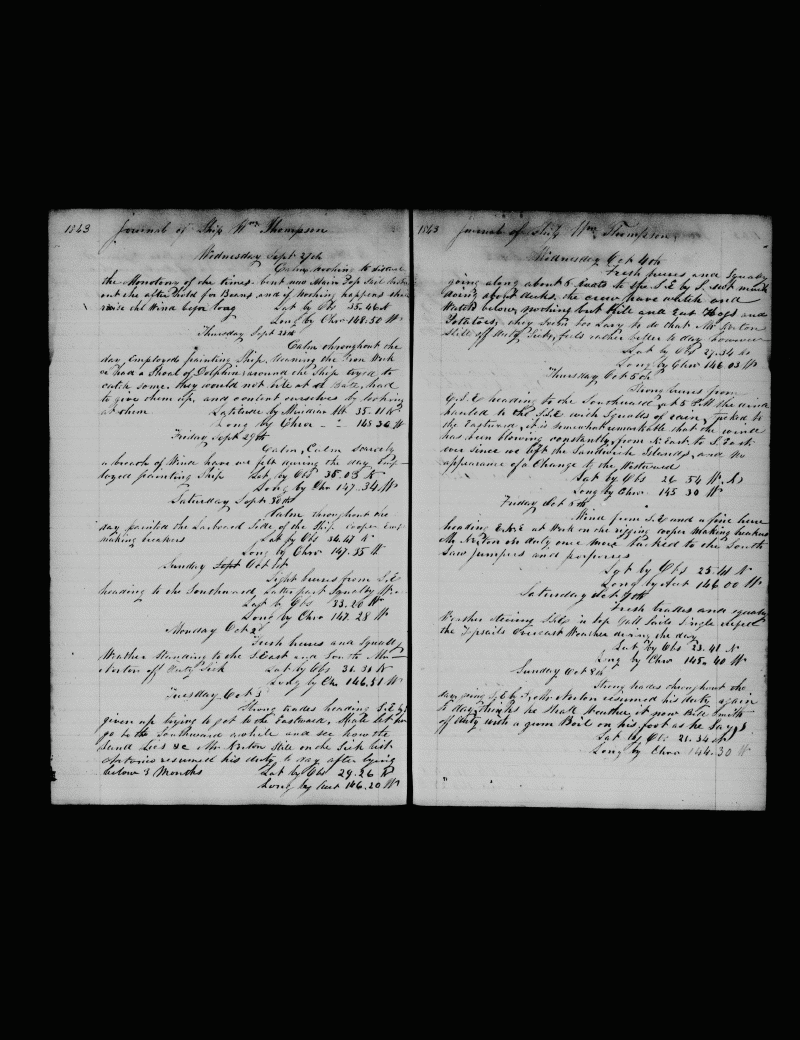 1843 Journal of Ship Wm Thompson
Wednesday Sept 27th
Calm, nothing to disturb
the Monotony of the times. bent new Main Top Sail broke
out the after hold for Beans, and if nothing happens shall
raise the Wind before long Lat by Obs 35.46 N
Long by Chro 148.50 W
Thursday Sept 28th
Calm throughout the
day, Employed painting Ship, cleaning the Iron Work
we had a Shoal of Dolphins around the Ship tryed to
catch some, they would not bite at a Bait, had
to give them up, and content ourselves by looking
at them Latitude by Meridian Alt 35.11 N
Long by Chro - " - 148 36 W
Friday Sept 29th
Calm, Calm scarcely
a breath of Wind have we felt during the day Emp
loyed painting Ship Lat by Obs 35.03 N
Long by Chr 147.34 W
Saturday Sept 30th
Calm throughout the
day painted the Larboard Side of the Ship. Cooper Emp
making breakers Lat by Obs 34.47 N
Long by Chro 147.35 W
Sunday Sept Oct 1st
Light breezes from S.E
heading to the Southward, Latter part Squally
Lat by Obs 33.26 N
Long by Chro 147.28 W
Monday Oct 2d
Fresh breeses and Squally
Weather Standing to the S.East and South Mr
Norton off Duty Sick Lat by Obs 31.31 N
Long by Chr 146.51 W
Tuesday Oct 3
Strong trades heading S.E by S
given up trying to get to the Eastward, Shall let her
go to the Southward awhile and see how the
land lies &c Mr Norton Still on the Sick list
Antonio resumed his duty to day after being
below 3 Months Lat by Obs 29.26 N
Long by Aut 146.20 W
1843 Journal of Ship Wm Thompson
Wednesday Oct 4th
Fresh breeses and Squally
going along about 5 knots to the S.E by S. not much
doing about decks, the crew have watch and
Watch below, nothing but fill and Eat Hogs and
Potatoes, they Seem too Lazy to do that Mr Norton
Still off duty, Sick, feels rather better to day however
Lat by Obs 27.34 N
Long by Chro 146 03 W
Thursday Oct 5th
Strong breeses from
E.S.E heading to the Southward, at 5 PM the wind
hauled to the S.SE with Squalls of rain, tacked to
the Eastward, it is somewhat remarkable that the wind
has been blowing constantly from N.East to S.East
ever since we left the Sandwich Islands, and no
appearance of a Change to the Westward
Lat by Obs 26 54 N
Long by Chro 145 30 W
Friday Oct 6th
Wind from S.E and a fine breese
heading E.N.E at Work on the rigging cooper Making breakers
Mr Norton on duty once more tacked to the South
Saw jumpers and porpoises
Lat by Obs 25.41 N
Long by Aut 146.00 W
Saturday Oct 7th
Fresh trades and squally
Weather Steering S.SE in top Gall Sails Single reefed
the Topsails Overcast Weather during the day
Lat by Obs 23.41 N
Long by Chro 145.40 W
Sunday Oct 8th
Strong trades throughout the
day, going S.E by S, Mr Norton resumed his duty again
to day, thinks he Shall Weather it now Bill Smith
off duty with a grum Boil on his foot as he Says
Lat by Obs 21.34 N
Long by Chro 144.30 W